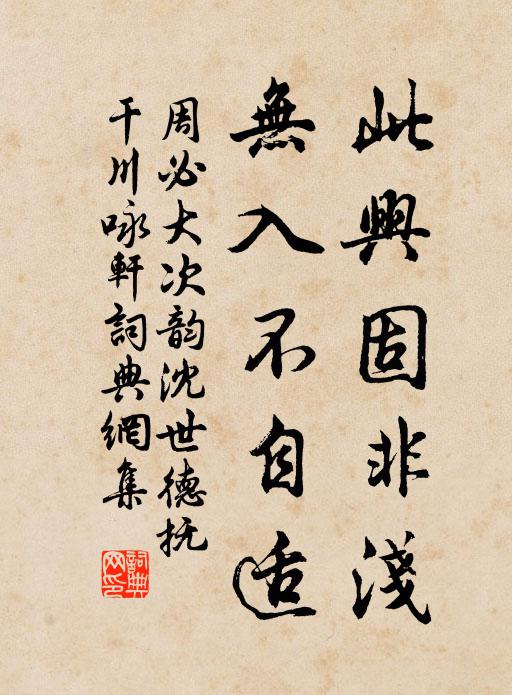 此興固非淺
無入不自适
周必大次韵沈世德抚
干川咏軒詞典網集
詞典
网印